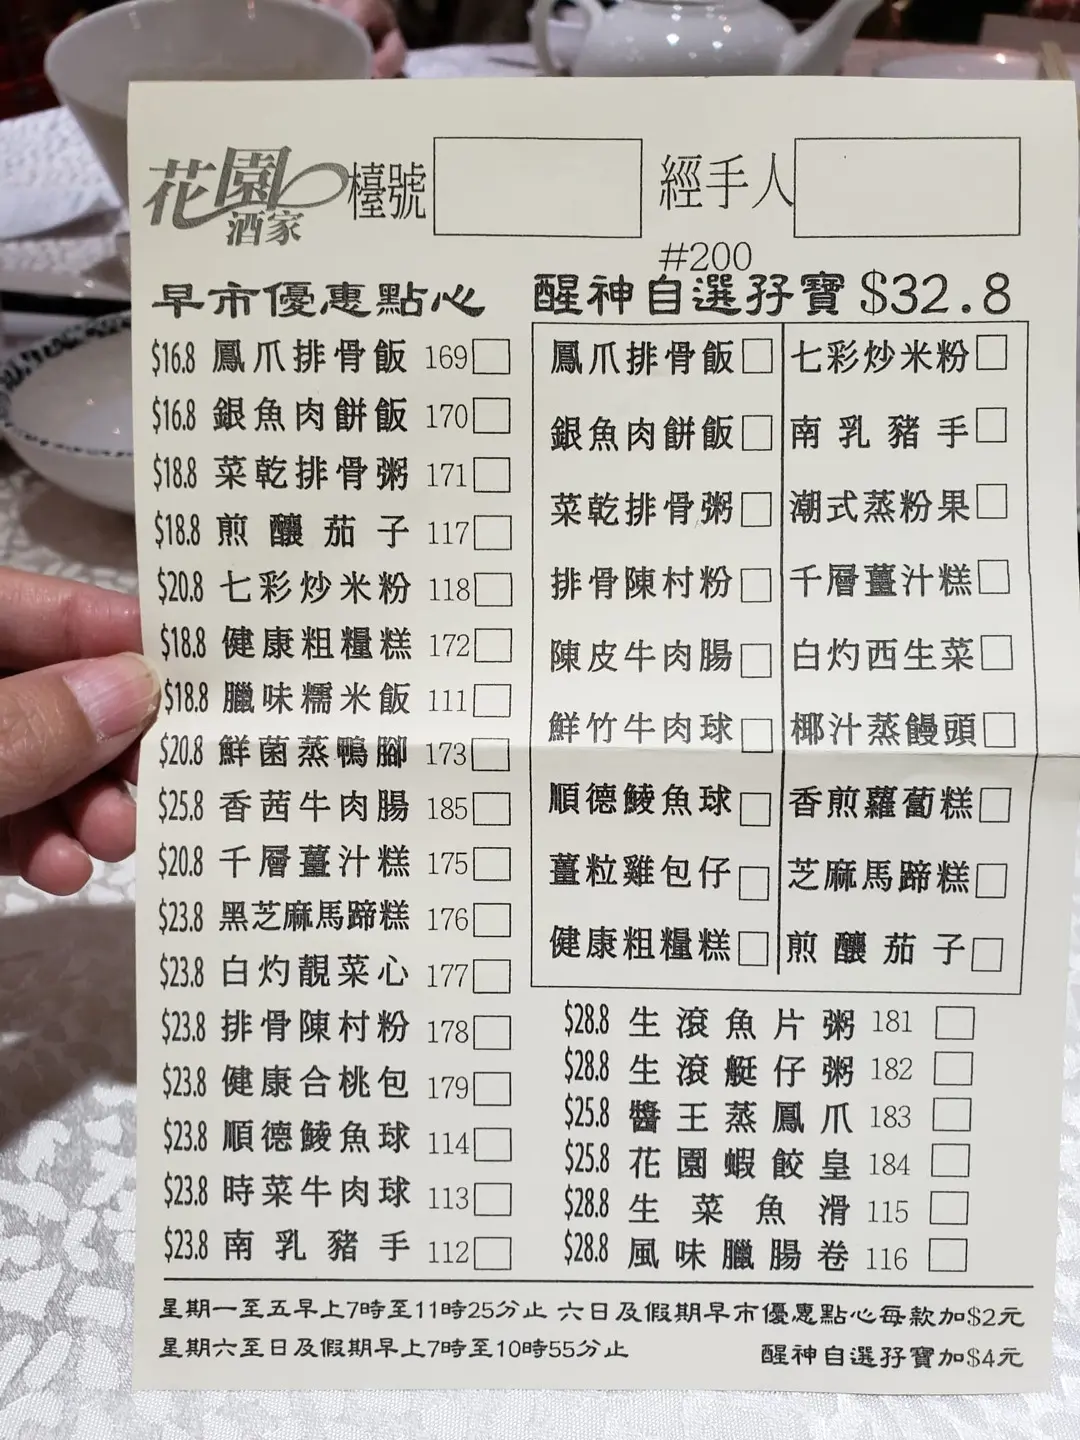 花園酒家 檯號 經手人
#200
早市優惠點心
$16.8 鳳爪排骨飯 169
$16.8 銀魚肉餅飯 170
$18.8 菜乾排骨粥 171
$18.8 煎釀茄子 117
$20.8 七彩炒米粉 118
$18.8 健康粗糧糕 172
$18.8 臘味糯米飯 111
$20.8 鮮菌蒸鴨腳 173
$25.8 香茜牛肉腸 185
$20.8 千層薑汁糕 175
$23.8 黑芝麻馬蹄糕 176
$23.8 白灼靚菜心 177
$23.8 排骨陳村粉 178
$23.8 健康合桃包 179
$23.8 順德鯪魚球 114
$23.8 時菜牛肉球 113
$23.8 南乳豬手 112
醒神自選孖寶 $32.8
鳳爪排骨飯 七彩炒米粉
銀魚肉餅飯 南乳豬手
菜乾排骨粥 潮式蒸粉果
排骨陳村粉 千層薑汁糕
陳皮牛肉腸 白灼西生菜
鮮竹牛肉球 椰汁蒸饅頭
順德鯪魚球 香煎蘿蔔糕
薑粒雞包仔 芝麻馬蹄糕
健康粗糧糕 煎釀茄子
$28.8 生滾魚片粥 181
$28.8 生滾艇仔粥 182
$25.8 醬王蒸鳳爪 183
$25.8 花園蝦餃皇 184
$28.8 生菜魚滑 115
$28.8 風味臘腸卷 116
星期一至五早上7時至11時25分止 六日及假期早市優惠點心每款加$2元
星期六至日及假期早上7時至10時55分止 醒神自選孖寶加$4元